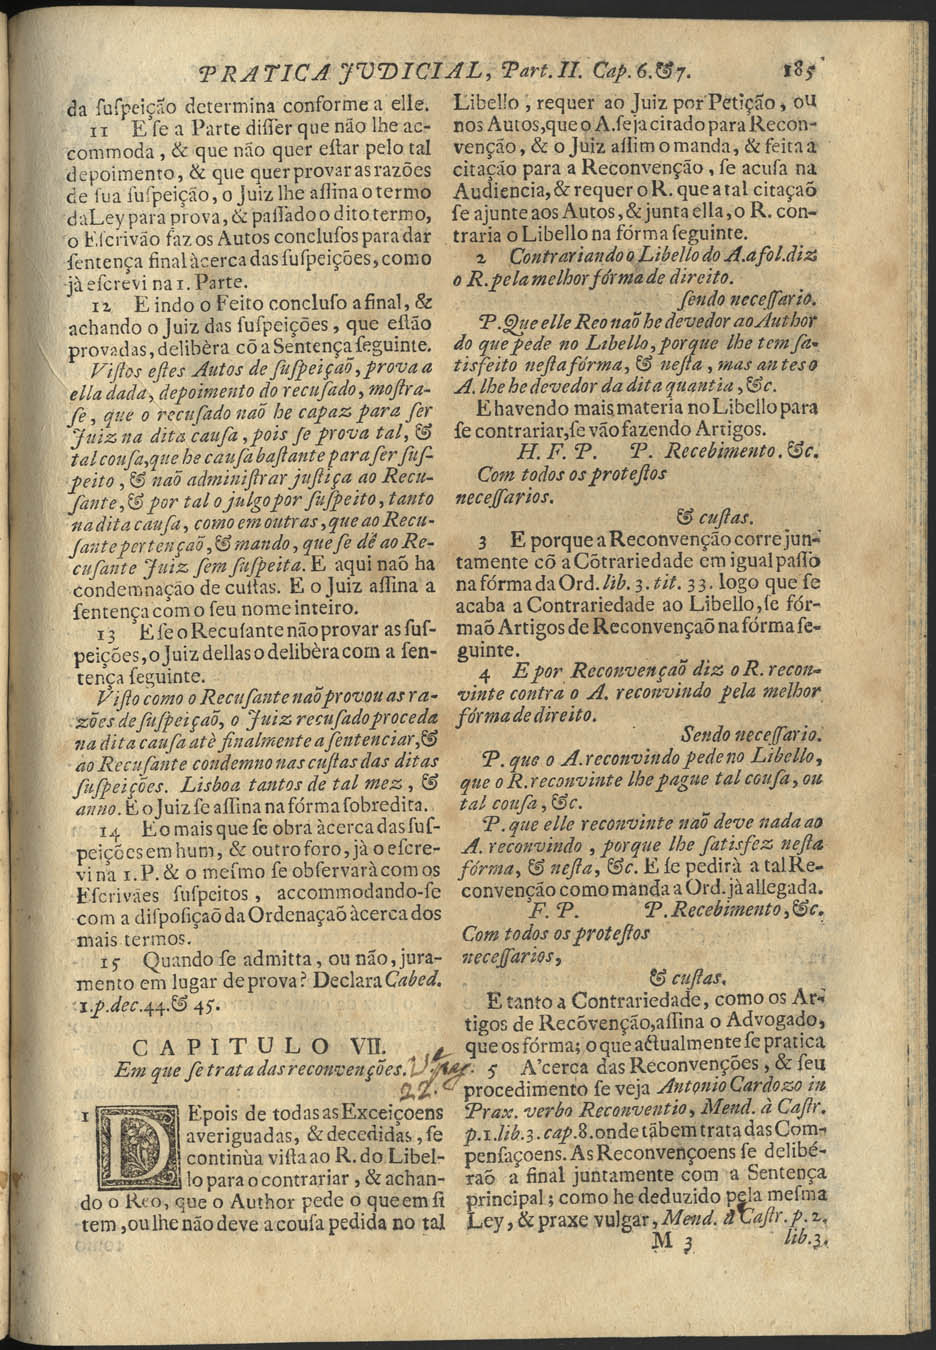 PRATICA JVDICIAL, Part. II. Cap. 6. & 7. 185
da suspeição determina conforme a elle.
11 E se a Parte disser que não lhe ac-
commoda, & que não quer estar pelo tal
depoimento, & que quer provar as razões
de sua suspeição, o Juiz lhe assina o termo
da Ley para prova, & passado o dito termo,
o Escrivão faz os Autos conclusos para dar
sentença final àcerca das suspeições, como
jà escrevi na 1. Parte.
12 E indo o Feito concluso a final, &
achando o Juiz das suspeições, que estão
provadas, delibèra cõ a Sentença seguinte.
Vistos estes Autos de suspeiçaõ, prova a
ella dada, depoimento do recusado, mostra-
se, que o recusado naõ he capaz para ser
Juiz na dita causa, pois se prova tal, &
tal cousa, que he causa bastante para ser sus-
peito, & naõ administrar justiça ao Recu-
sante, & por tal o julgo por suspeito, tanto
na dita causa, como em outras, que ao Recu-
sante pertençaõ, & mando, que se dê ao Re-
cusante Juiz sem suspeita. E aqui naõ ha
condemnação de custas. E o Juiz assina a
sentença com o seu nome inteiro.
13 E se o Recusante não provar as sus-
peições, o Juiz dellas o delibèra com a sen-
tença seguinte.
Visto como o Recusante naõ provou as ra-
zões de suspeiçaõ, o Juiz recusado proceda
na dita causa atè finalmente a sentenciar, &
ao Recusante condemno nas custas das ditas
suspeições. Lisboa tantos de tal mez, &
anno. E o Juiz se assina na fórma sobredita.
14 E o mais que se obra àcerca das sus-
peições em hum, & outro foro, jà o escre-
vi na 1. P. & o mesmo se observarà com os
Escrivães suspeitos, accommodando-se
com a disposiçaõ da Ordenaçaõ àcerca dos
mais termos.
15 Quando se admitta, ou não, jura-
mento em lugar de prova? Declara Cabed.
1. p. dec. 44. & 45.
CAPITULO VII.
Em que se trata das reconvenções.
22.
1 DEpois de todas as Exceiçoens
averiguadas, & decedidas, se
continùa vista ao R. do Libel-
lo para o contrariar, & achan-
do o Reo, que o Author pede o que em si
tem, ou lhe não deve a cousa pedida no tal
Libello, requer ao Juiz por Petição, ou
nos Autos, que o A. seja citado para Recon-
venção, & o Juiz assim o manda, & feita a
citação para a Reconvenção, se acusa na
Audiencia, & requer o R. que a tal citaçaõ
se ajunte aos Autos, & junta ella, o R. con-
traria o Libello na fórma seguinte.
2 Contrariando o Libello do A. a fol. diz
o R. pela melhor fórma de direito.
sendo necessario.
P. Que elle Reo naõ he devedor ao Author
do que pede no Libello, porque lhe tem sa-
tisfeito nesta fórma, & nesta, mas antes o
A. lhe he devedor da dita quantia, &c.
E havendo mais materia no Libello para
se contrariar, se vão fazendo Artigos.
H. F. P. P. Recebimento. &c.
Com todos os protestos
necessarios.
& custas.
3 E porque a Reconvenção corre jun-
tamente cõ a Cõtrariedade em igual passo
na fórma da Ord. lib. 3. tit. 33. logo que se
acaba a Contrariedade ao Libello, se fór-
maõ Artigos de Reconvençaõ na fórma se-
guinte.
4 E por Reconvençaõ diz o R. recon-
vinte contra o A. reconvindo pela melhor
fórma de direito.
Sendo necessario.
P. que o A. reconvindo pede no Libello,
que o R. reconvinte lhe pague tal cousa, ou
tal cousa, &c.
P. que elle reconvinte naõ deve nada ao
A. reconvindo, porque lhe satisfez nesta
fórma, & nesta, &c. E se pedirà a tal Re-
convenção como manda a Ord. jà allegada.
F. P. P. Recebimento, &c.
Com todos os protestos
necessarios,
& custas.
E tanto a Contrariedade, como os Ar-
tigos de Recõvenção, assina o Advogado,
que os fórma; o que actualmente se pratica
5 A'cerca das Reconvenções, & seu
procedimento se veja Antonio Cardozo in
Prax. verbo Reconventio, Mend. à Castr.
p. 1. lib. 3. cap. 8. onde tãbem trata das Com-
pensaçoens. As Reconvençoens se delibé-
raõ a final juntamente com a Sentença
principal; como he deduzido pela mesma
Ley, & praxe vulgar, Mend. à Castr. p. 2.
M 3 lib. 3.